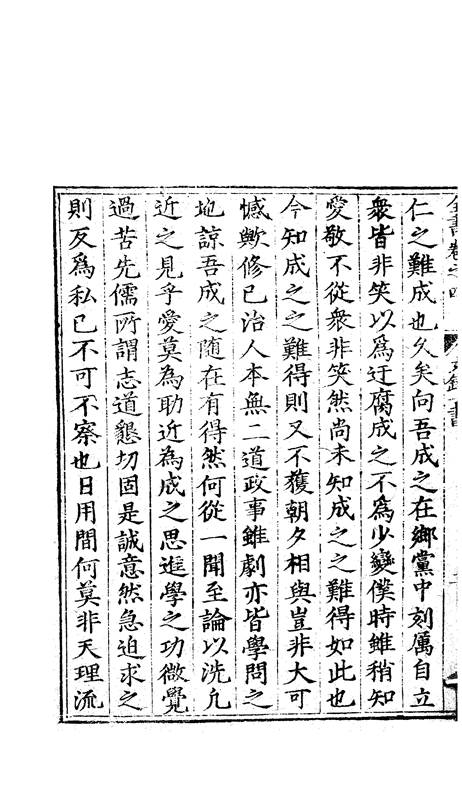 全書卷之四　文錄一書
仁之難成也久矣向吾成之在鄉黨中刻厲自立
衆皆非笑以爲迂腐成之不爲少變僕時雖稍知
愛敬不從衆非笑然尚未知成之之難得如此也
今知成之之難得則又不獲朝夕相與豈非大可
憾歟修已治人本無二道政事雖劇亦皆學問之
地諒吾成之隨在有得然何從一聞至論以洗凡
近之見乎愛莫為助近為成之思進學之功微覺
過苦先儒所謂志道懇切固是誠意然急迫求之
則反爲私已不可不察也日用間何莫非天理流